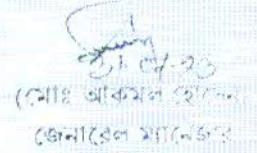 (মোঃ আকমল হোসেন
জেনারেল ম্যানেজার